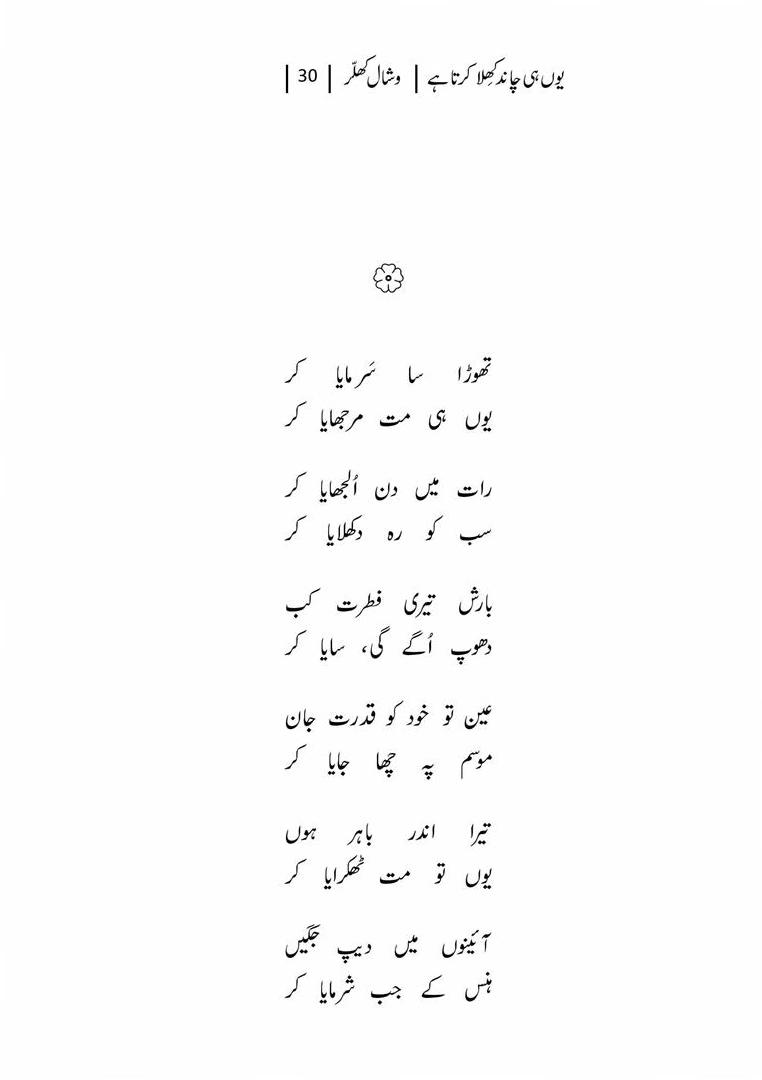 یوں ہی چاند کھِلا کرتا ہے | وشال کھلّر | 30 |
تھوڑا سا سَرمایا کر
یوں ہی مت مرجھایا کر
رات میں دن اُلجھایا کر
سب کو رہ دکھلایا کر
بارش تیری فطرت کب
دھوپ اُگے گی، سایا کر
عین تو خود کو قدرت جان
موسم پہ چھا جایا کر
تیرا اندر باہر ہوں
یوں تو مت ٹھکرایا کر
آئینوں میں دیپ جگیں
ہنس کے جب شرمایا کر